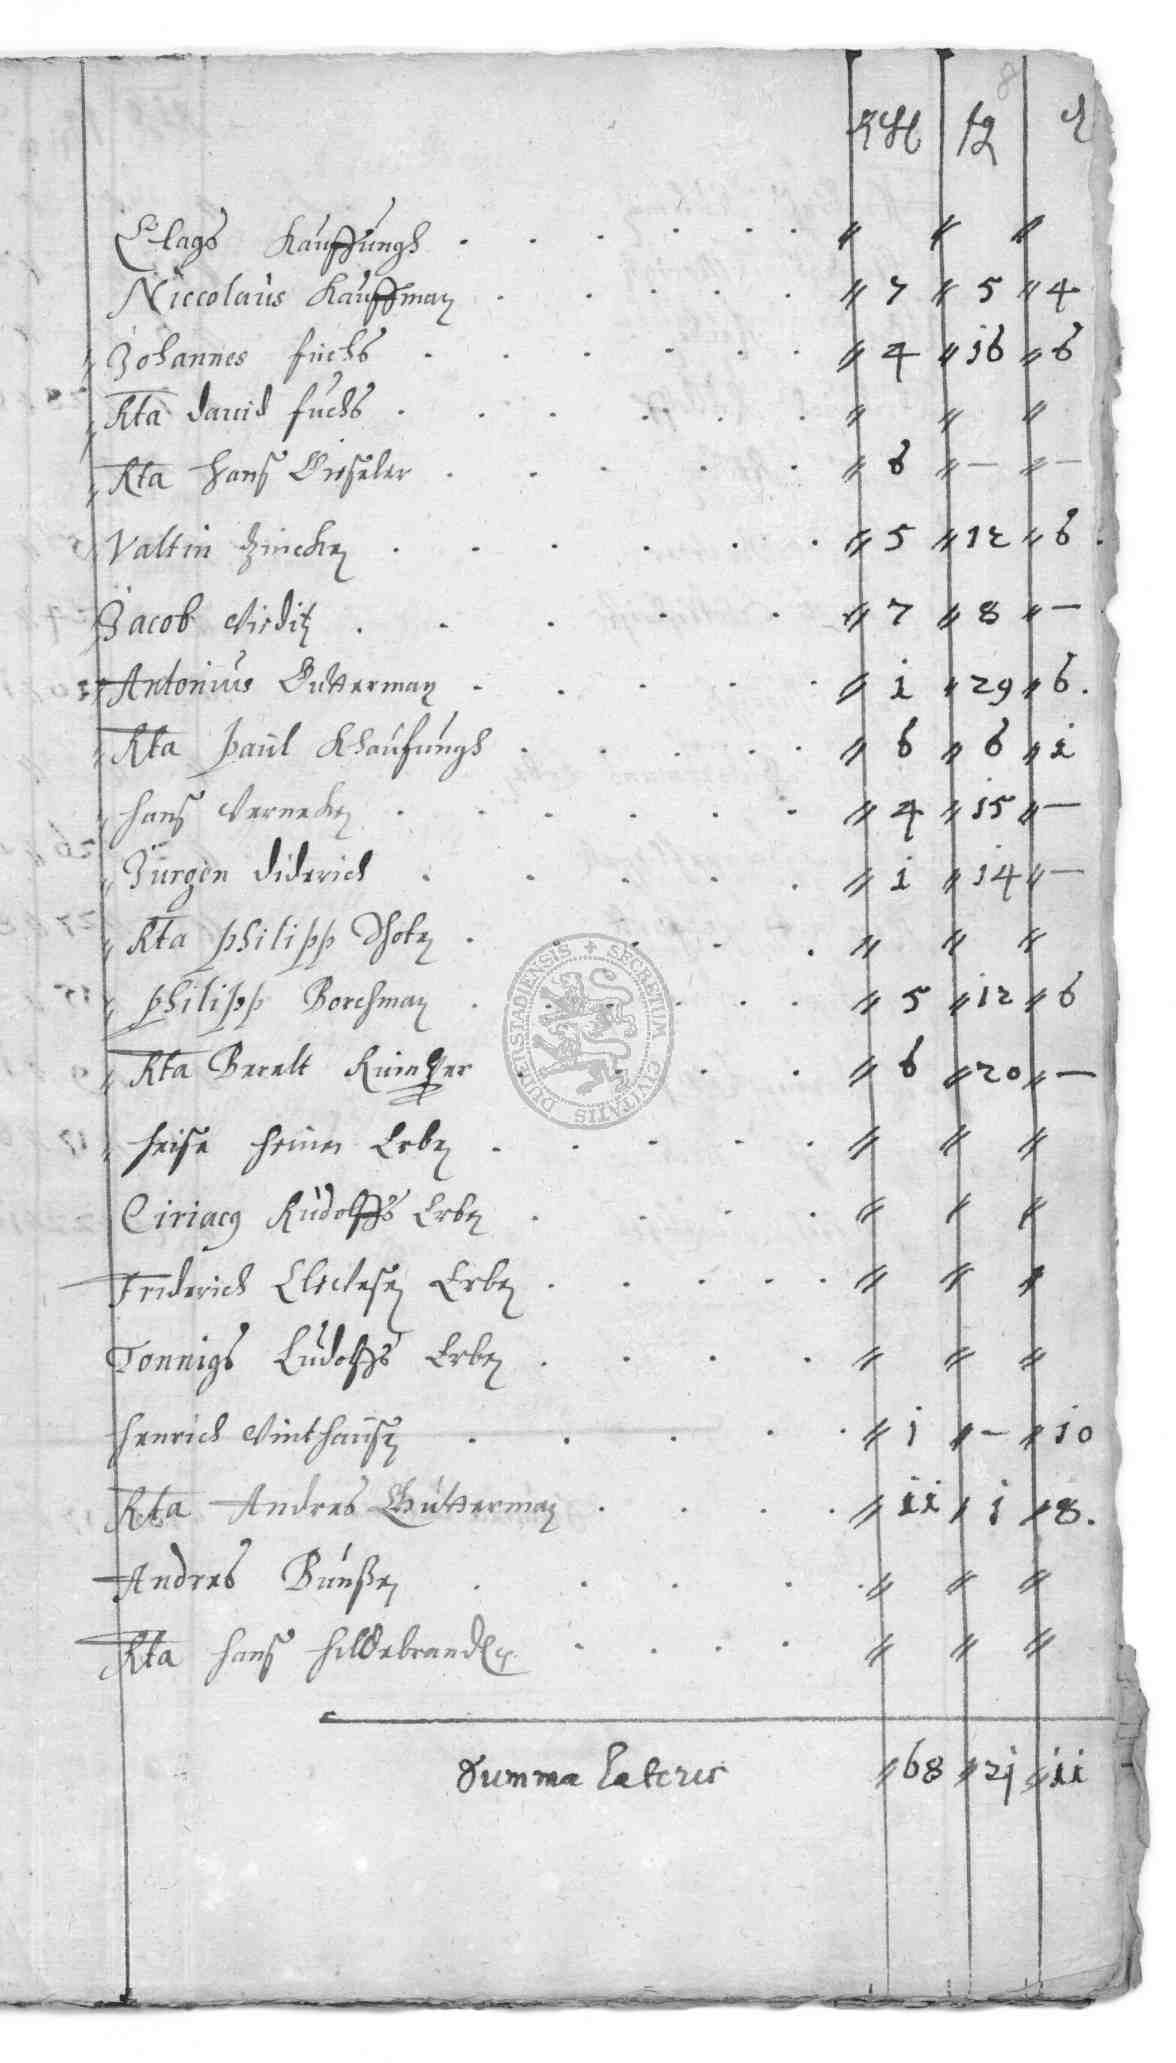 8
Rth ßl d
Clags Kauffungh . . . . . . // // //
Niccolaus Kauffman . . . . . // 7 // 5 // 4
Johannes fuchs . . . . . . // 4 // 16 // 6
Rta dauid fuchs . . . . . . // // //
Rta Hans Giseler . . . . . // 6 // — // —
Valtin Zincken . . . . . . // 5 // 12 // 6 .
Jacob Virditz . . . . . // 7 // 8 // —
Antonius Gutterman . . . . . // 1 // 29 // 6 .
Rta Paul Khaufungh . . . . . // 6 // 6 // i
Hans Vernecken . . . . . . // 4 // 15 // —
Jurgen diderich . . . . . // 1 // 14 // —
Rta Philipp . . . . . // // //
Philipp Borchman . . . . . // 5 // 12 // 6
Rta Berelt . . . . . // 6 // 20 // —
Heise Heinen Erben . . . . . // // //
Ciriacg Rudolffs Erben . . . . // // //
Friderich Erben . . . . . // // //
Tonnigs Ludolffs Erben . . . . // // //
Henrich Vinthausen . . . . . // i // — // 10
Rta Andres Gutterman . . . . // ii // i // 8 .
Andres Bunßen . . . . . // // //
Rta Hans Hildebrandt . . . . // // //
Summa Lateris // 68 // 21 // ii
SECRETUM CIVITATIS DUDERSTADIENSIS